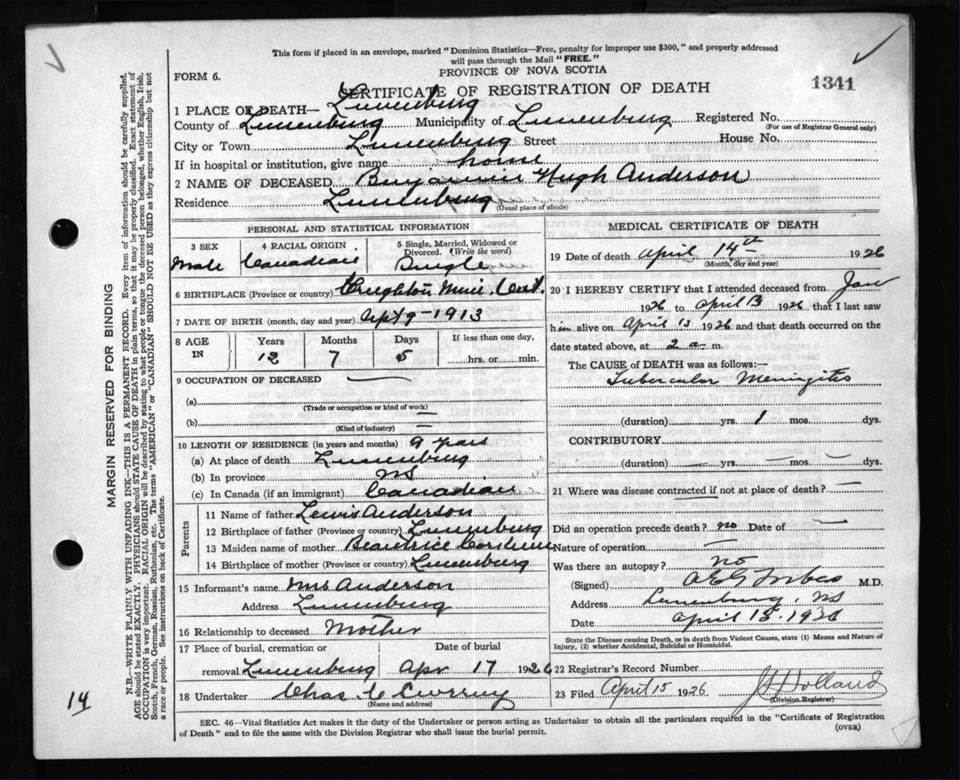 This form if placed in an envelope, marked "Dominion Statistics—Free, penalty for improper use $300," and properly addressed
will pass through the Mail "FREE."
PROVINCE OF NOVA SCOTIA
FORM 6.
CERTIFICATE OF REGISTRATION OF DEATH
1341
1 PLACE OF DEATH— Lunenburg
County of Lunenburg Municipality of Lunenburg Registered No.
(For use of Registrar General only)
City or Town Lunenburg Street House No.
If in hospital or institution, give name home
2 NAME OF DECEASED Benjamin Hugh Anderson
Residence Lunenburg
(Usual place of abode)
PERSONAL AND STATISTICAL INFORMATION
3 SEX Male
4 RACIAL ORIGIN Canadian
5 Single, Married, Widowed or Divorced. (Write the word) Single
6 BIRTHPLACE (Province or country) Creighton Mine. Ont.
7 DATE OF BIRTH (month, day and year) Sept 9-1913
8 AGE IN Years Months Days If less than one day,
12 7 5 hrs. or min.
9 OCCUPATION OF DECEASED —
(a)
(Trade or occupation or kind of work)
(b) —
(Kind of industry) —
10 LENGTH OF RESIDENCE (in years and months) 9 years
(a) At place of death Lunenburg
(b) In province NS
(c) In Canada (if an immigrant) Canadian
Parents
11 Name of father Lewis Anderson
12 Birthplace of father (Province or country) Lunenburg
13 Maiden name of mother Beatrice
14 Birthplace of mother (Province or country) Lunenburg
15 Informant's name Mrs Anderson
Address Lunenburg
16 Relationship to deceased Mother
17 Place of burial, cremation or Date of burial
removal Lunenburg Apr 17 1926
18 Undertaker Chas
(Name and address)
MEDICAL CERTIFICATE OF DEATH
19 Date of death April 14th 1926
(Month, day and year)
20 I HEREBY CERTIFY that I attended deceased from Jan
1926 to April 13 1926 that I last saw
him alive on April 13 1926 and that death occurred on the
date stated above, at 2 a m.
The CAUSE of DEATH was as follows:—
Tubercular Meningitis
(duration) yrs. 1 mos. dys.
CONTRIBUTORY
(duration) — yrs. — mos. — dys.
21 Where was disease contracted if not at place of death? —
Did an operation precede death? no Date of —
Nature of operation —
Was there an autopsy? no
(Signed) M.D.
Address Lunenburg, NS
Date April 15-1926
State the Disease causing Death, or in death from Violent Causes, state (1) Means and Nature of
Injury, (2) whether Accidental, Suicidal or Homicidal.
22 Registrar's Record Number
23 Filed April 15 1926 Holland
(Division Registrar)
SEC. 46—Vital Statistics Act makes it the duty of the Undertaker or person acting as Undertaker to obtain all the particulars required in the "Certificate of Registration
of Death" and to file the same with the Division Registrar who shall issue the burial permit.
(OVER)
MARGIN RESERVED FOR BINDING
N.B.—WRITE PLAINLY WITH UNFADING INK—THIS IS A PERMANENT RECORD. Every item of information should be carefully supplied.
AGE should be stated EXACTLY. PHYSICIANS should STATE CAUSE OF DEATH in plain terms, so that it may be properly classified. Exact statement of
OCCUPATION is very important. RACIAL ORIGIN will be described by stating to what people or tongue the deceased person belonged, whether English, Irish,
Scotch, French, German, Russian, Ruthenian, etc. The terms "AMERICAN" or "CANADIAN" SHOULD NOT BE USED as they express citizenship but not
a race or people. See instructions on back of Certificate.
14